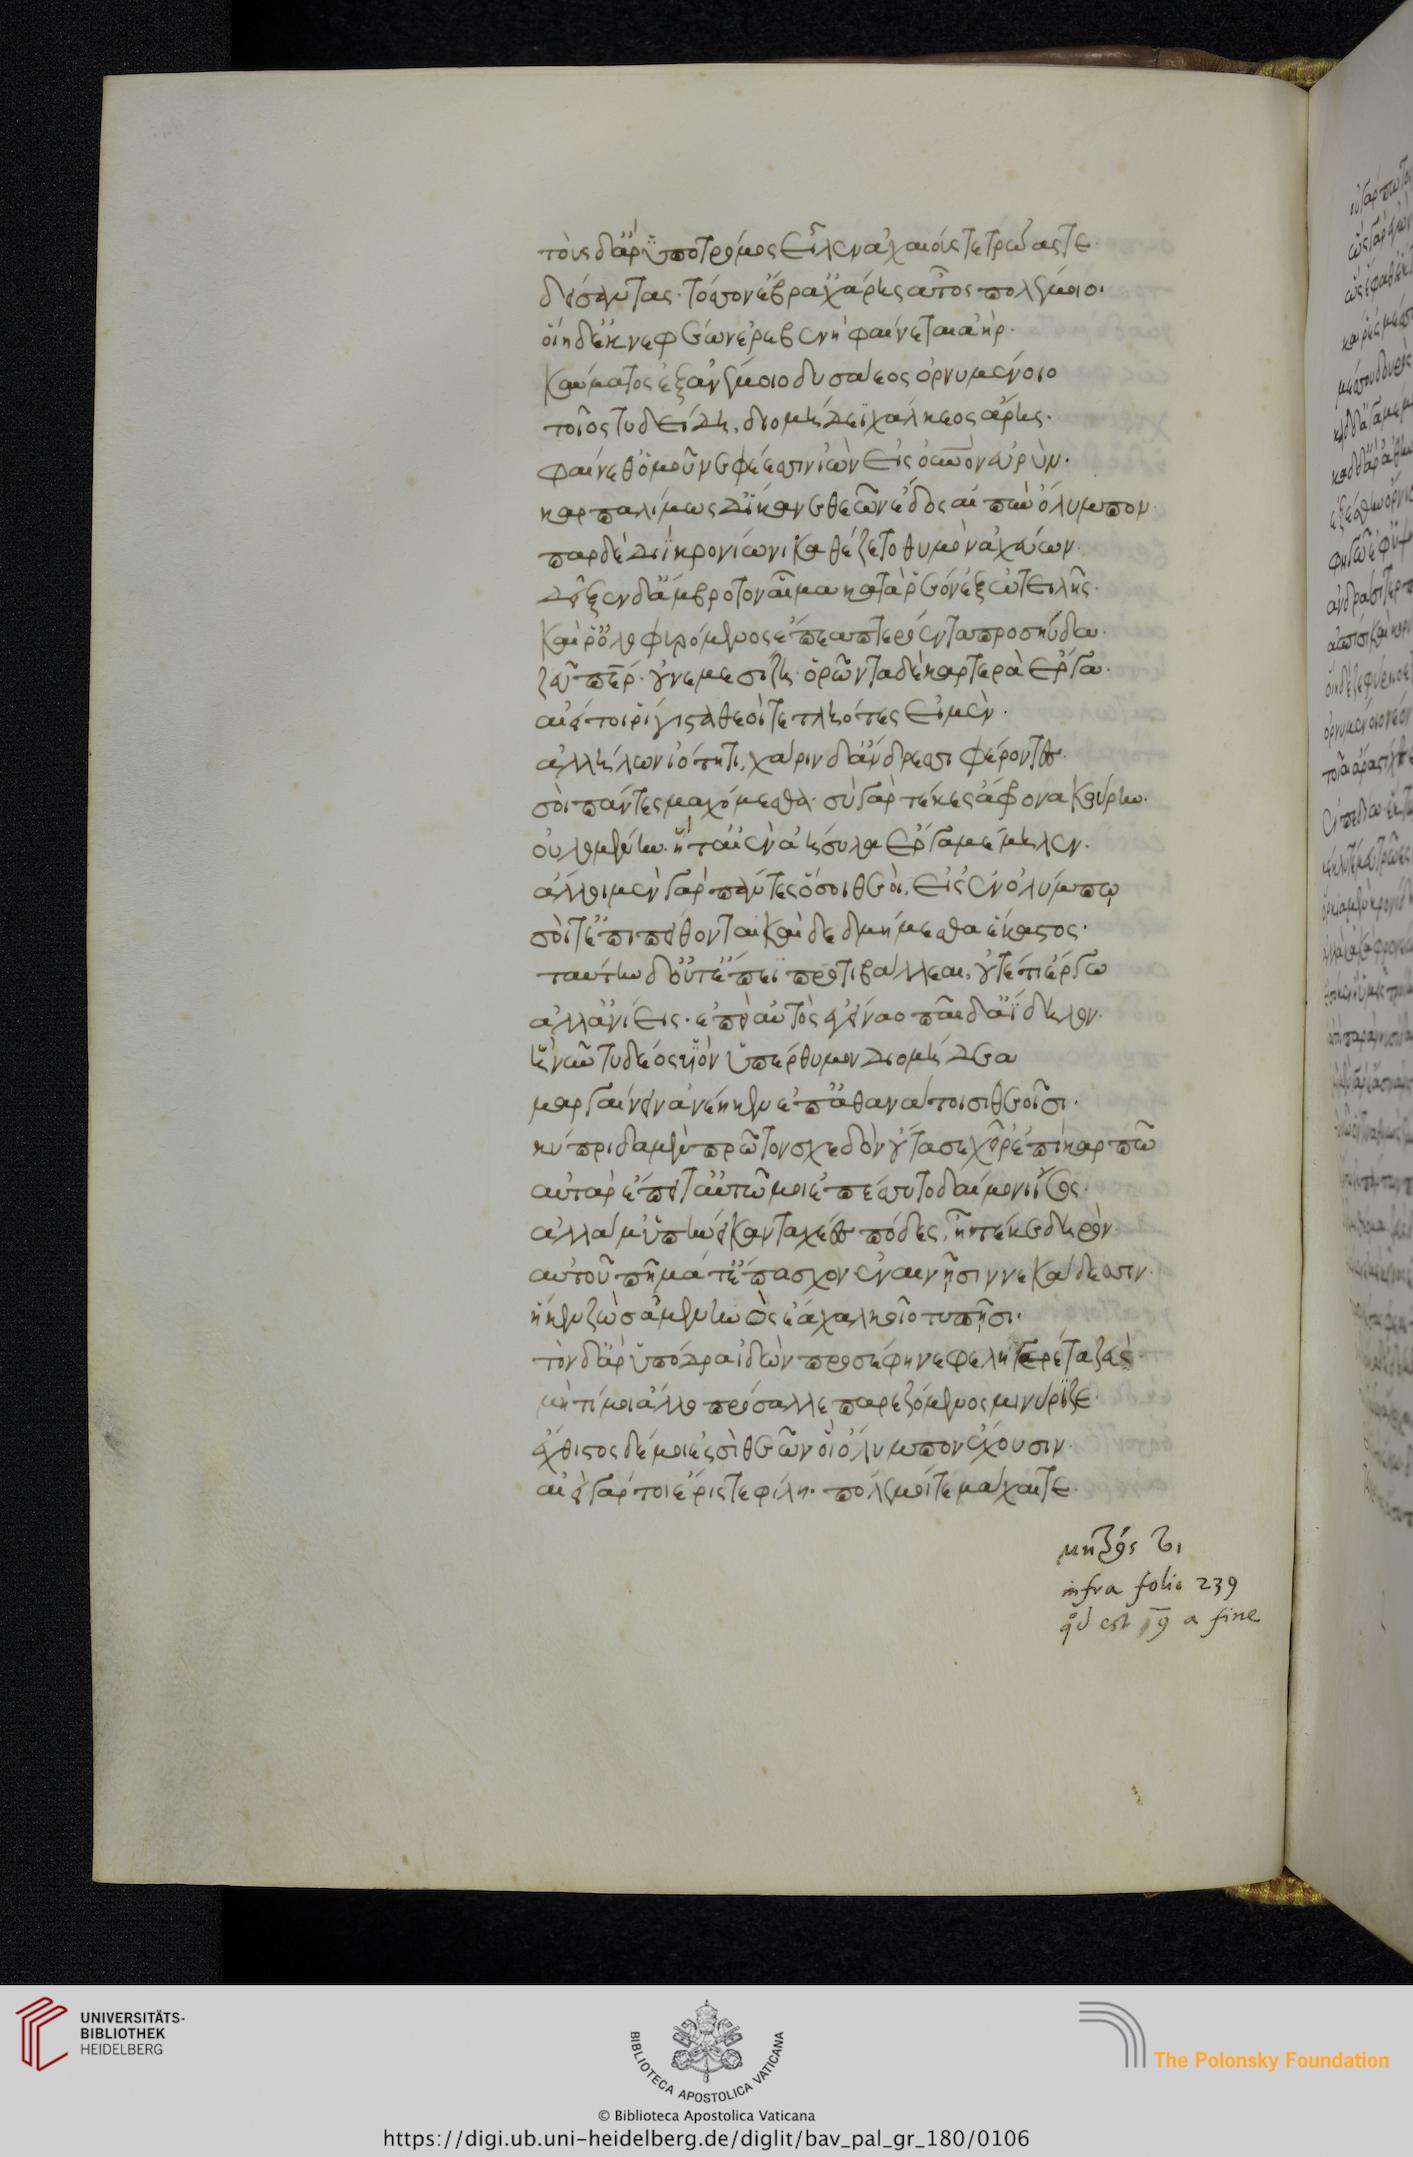 τοὺς δ' ἄρ' ὑπὸ τρόμος εἷλεν ἀχαιούς τε τρῶάς τε·
δείσαντας· τόσσον ἔβραχ' ἄρης ἆτος πολέμοιο·
οἵη δ' ἐκ νεφέων ἐρεβεννὴ φαίνεται ἀήρ·
καύματος ἐξ ἀνέμοιο δυσαέος ὀρνυμένοιο
τοῖος τυδείδη, διομήδεϊ χάλκεος ἄρης·
φαίνεθ' ὁμοῦ νεφέεσσιν ἰὼν εἰς οὐρανὸν εὐρὺν·
καρπαλίμως δ' ἵκανε θεῶν ἕδος αἰπὺν ὄλυμπον
παρ δὲ διῒ κρονίωνι καθέζετο θυμὸν ἀχεύων·
δεῖξεν δ' ἄμβροτον αἷμα καταρρέον ἐξ ὠτειλῆς·
καί ῥ' ὀλοφυρόμενος ἔπεα πτερόεντα προσηύδα·
ζεῦ πάτερ· οὐ νεμεσίζη ὁρῶν τάδε καρτερὰ ἔργα·
αἰεί τοι ῥίγιστα θεοί τετληότες εἰμὲν·
ἀλλήλων ἰότητι, χάριν δ' ἄνδρεσσι φέροντες·
σοὶ πάντες μαχόμεσθα· σὺ γὰρ τέκες ἄφρονα κούρην·
οὐλομένην· ᾗ τ' αἰὲν ἀήσυλα ἔργα μέμηλεν·
ἄλλοι μὲν γὰρ πάντες ὅσοι θεοί, εἰσ' ἐν ὀλύμπῳ
σοί τ' ἐπιπείθονται καὶ δεδμήμεσθα ἕκαστος·
ταύτην δ' οὔτ' ἔπεϊ προτιβάλλεαι, οὔτέ τι ἔργω
ἀλλ' ἀνιεῖς· ἐπεὶ αὐτὸς ἐγείναο παῖδ' ἀΐδηλον·
ἣ νῦν τυδέος υἱὸν ὑπέρθυμον διομήδεα
μαργαίνειν ἀνέηκεν ἐπ' ἀθανάτοισι θεοῖσι·
κύπριδα μὲν πρῶτον σχεδὸν οὔτασε χεῖρ' ἐπὶ καρπῶ
αὐτὰρ ἔπειτ' αὐτῶ μοι ἐπέσσυτο δαίμονι ἶσος·
ἀλλά μ' ὑπήνεικαν ταχέες πόδες, ἦ τέ κε δηρὸν
αὐτοῦ πήματ' ἔπασχον ἐν αἰνῇσιν νεκάδεσσιν·
ἤ κεν ζὼς ἀμενηνὸς ἔα χαλκοῖο τυπῇσι·
τὸν δ' ἄρ' ὑπόδρα ἰδὼν προσέφη νεφεληγερέτα ζεὺς·
μή τί μοι ἀλλοπρόσαλλε παρεζόμενος μινύριζε·
ἔχθιστος δέ μοί ἐσσι θεῶν οἳ ὄλυμπον ἔχουσιν·
αἰεὶ γάρ τοι ἔρις τε φίλη· πόλεμοί τε μάχαι τε·
μητρός τοι
infra folio 239
qd est 19 a fine
UNIVERSITÄTS-
BIBLIOTHEK
HEIDELBERG
BIBLIOTECA APOSTOLICA VATICANA
The Polonsky Foundation
© Biblioteca Apostolica Vaticana
https://digi.ub.uni-heidelberg.de/diglit/bav_pal_gr_180/0106